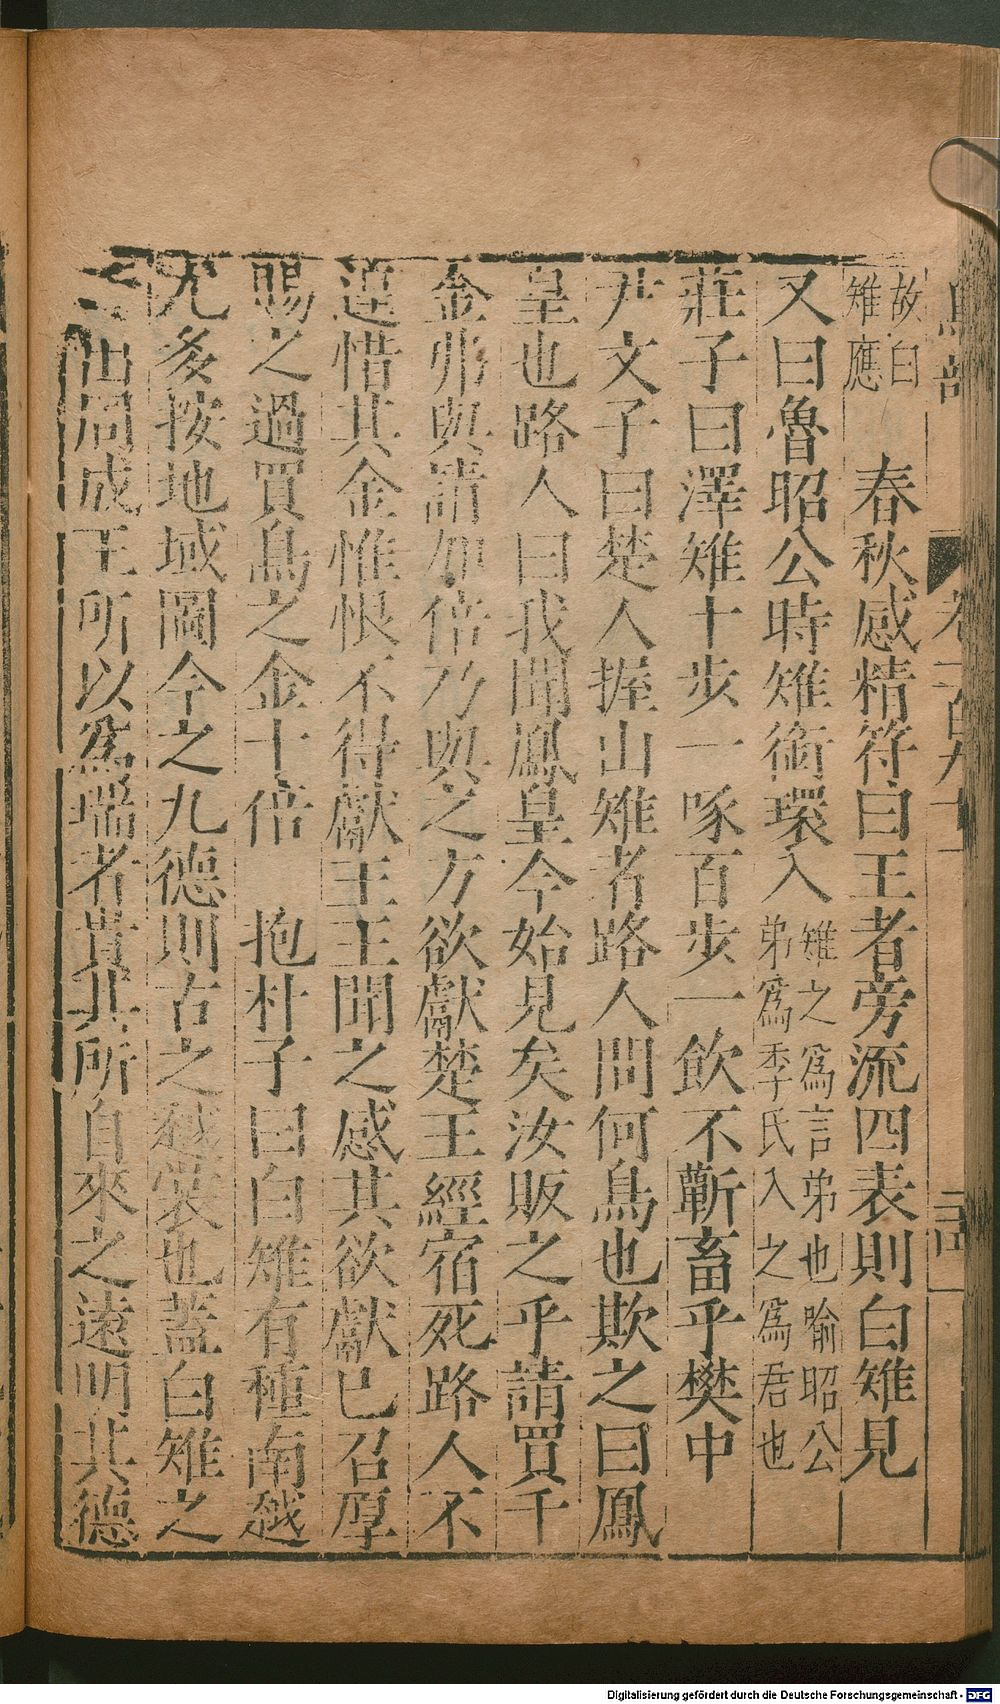 鳥部 卷一百九十一 三四
故白雉應 春秋感精符曰王者旁流四表則白雉見
又曰魯昭公時雉銜環入雉之爲言弟也喻昭公弟爲季氏入之爲君也
莊子曰澤雉十步一啄百步一飲不蘄畜乎樊中
尹文子曰楚人握山雉者路人問何鳥也欺之曰鳳
皇也路人曰我聞鳳皇今始見矣汝販之乎請買千
金弗與請加倍乃與之方欲獻楚王經宿死路人不
遑惜其金惟恨不得獻王王聞之感其欲獻已召厚
賜之過買鳥之金十倍 抱朴子曰白雉有種南越
尤多按地域圖今之九德則古之越裳也蓋白雉之
所出周成王所以爲瑞者貴其所自來之遠明其德
Digitalisierung gefördert durch die Deutsche Forschungsgemeinschaft - DFG